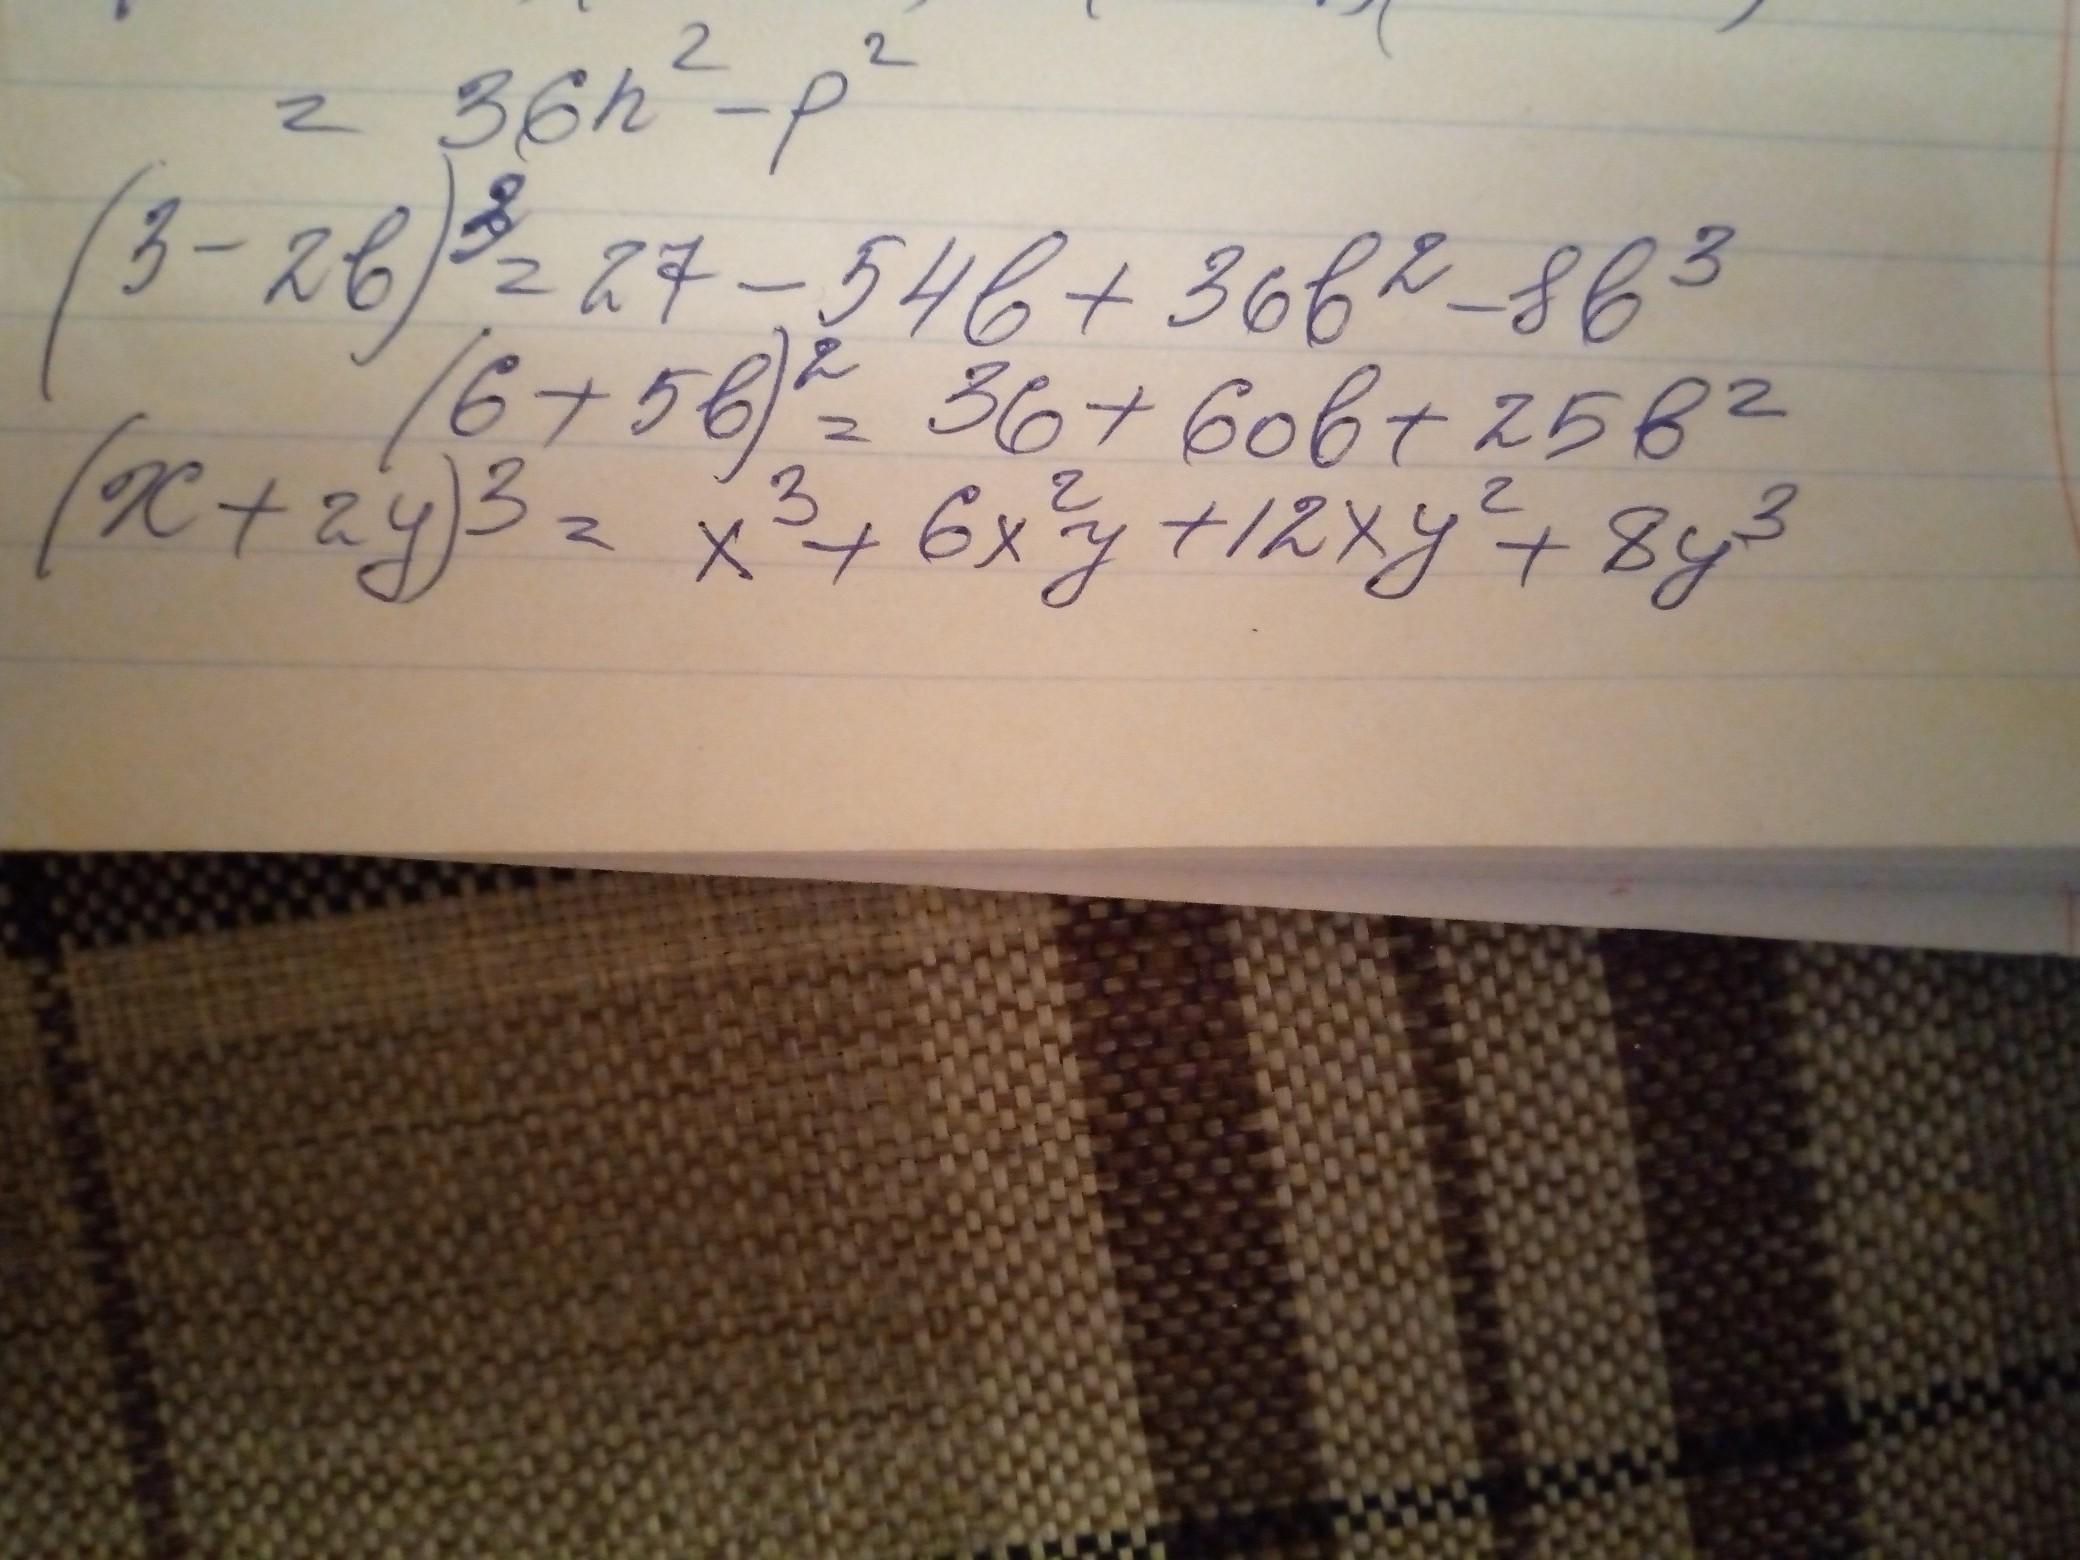 = 36n² - p²
(3 - 2b)³ = 27 - 54b + 36b² - 8b³
(6 + 5b)² = 36 + 60b + 25b²
(x + 2y)³ = x³ + 6x²y + 12xy² + 8y³